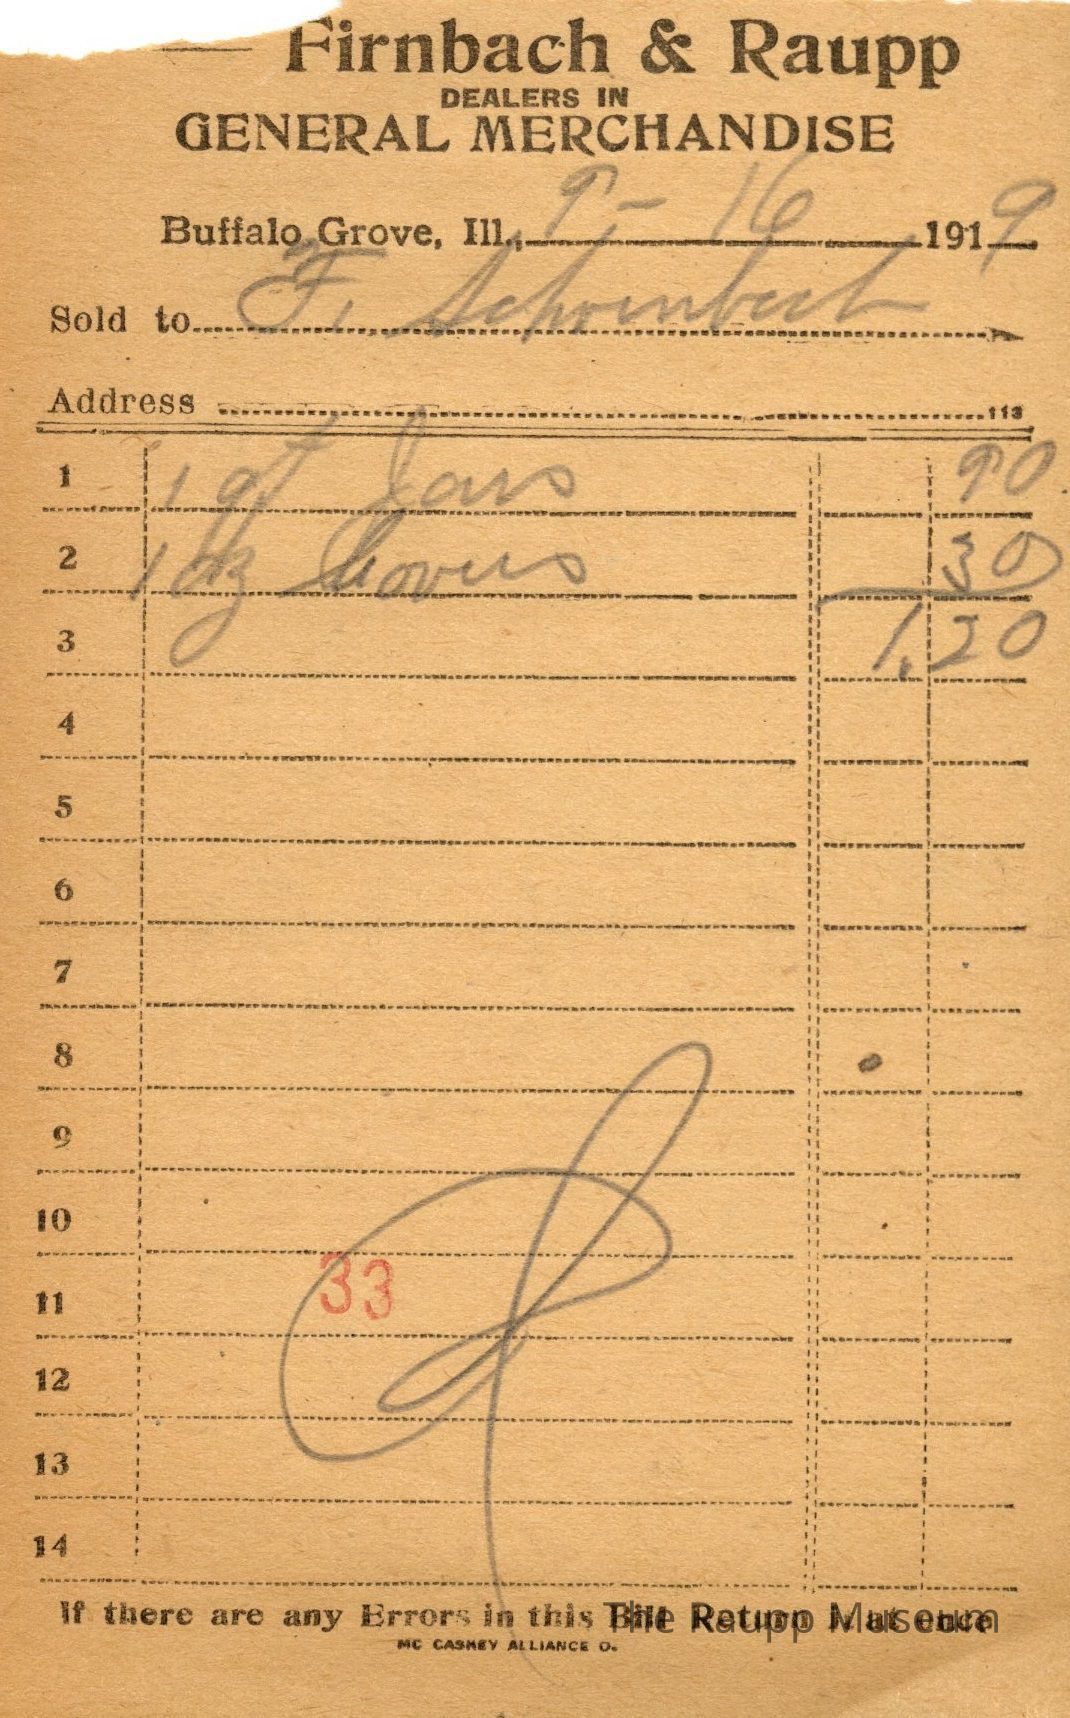 Firnbach & Raupp
DEALERS IN
GENERAL MERCHANDISE
Buffalo Grove, Ill., 9-16 1919
Sold to F. Schoenbeck
Address 113
1 1 qt Jars 90
2 1 dz Covers 30
3 1.20
4
5
6
7
8
9
10
11 33
12
13
14
If there are any Errors in this Bill Return it at once
The Raupp Museum
MC CASKEY ALLIANCE O.